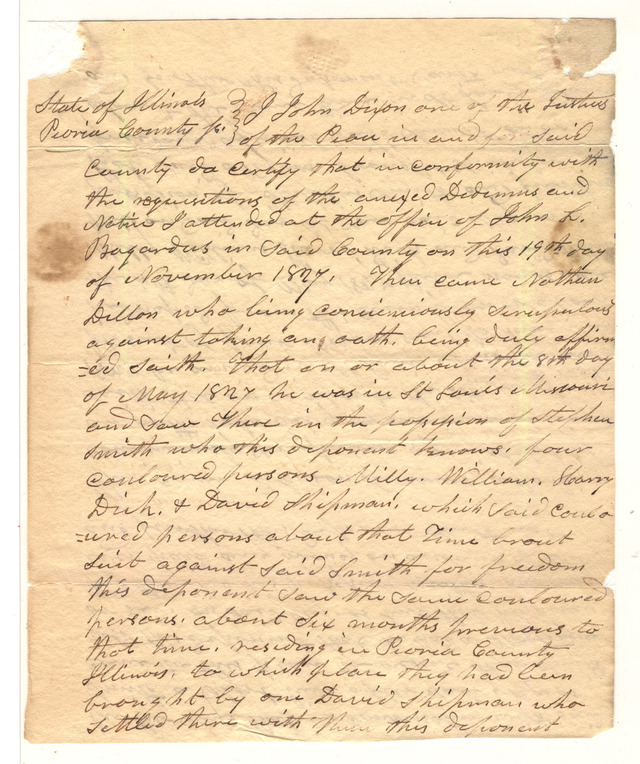 State of Illinois } I John Dixon one of the Justices
Peoria County ss. } of the Peace in and for said
County do certify that in conformity with
the requisitions of the anexed Dedimus and
Notice I attended at the office of John L.
Bogardus in said County on this 19th day
of November 1827. Then came Nathan
Dillon who being concieniously scrupulous
against taking an oath, being duly affirm
=ed saith. That on or about the 8th day
of May 1827 he was in St Louis Missouri
and saw there in the possession of Stephen
Smith who this deponent knows, four
couloured persons Milly, William, Harry
Dick, & David Shipman, which said coulo
=ured persons about that time brout
suit against said Smith for freedom
this deponent saw the same couloured
persons, about six months previous to
that time, residing in Peoria County
Illinois, to which place they had been
brought by one David Shipman who
settled there with them this deponent